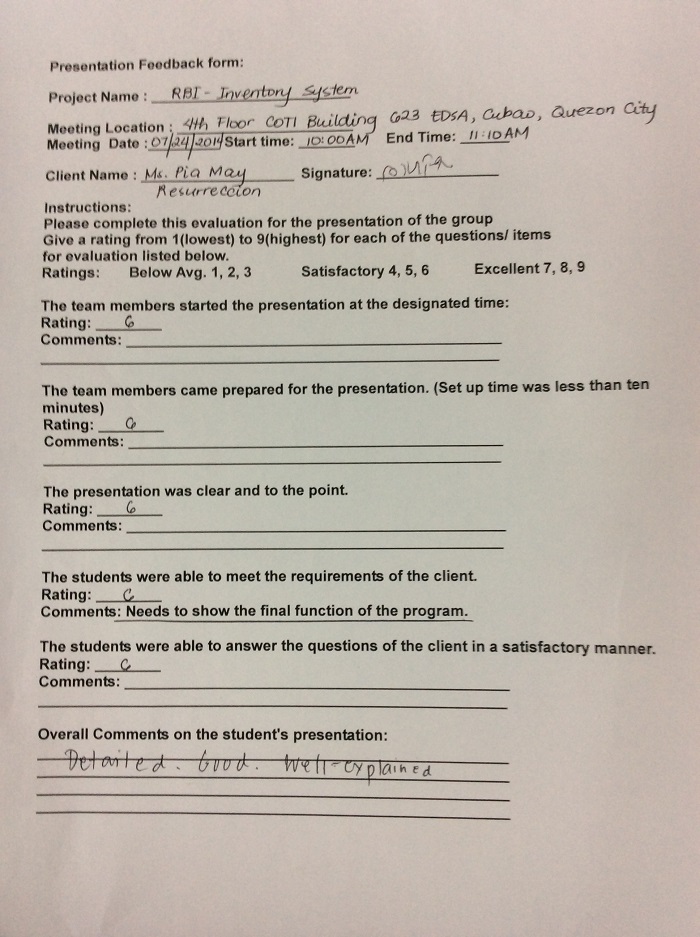 Presentation Feedback form:
Project Name : RBI - Inventory System
Meeting Location : 4th Floor COTI Building 623 EDSA, Cubao, Quezon City
Meeting Date : 07/24/2014 Start time: 10:00AM End Time: 11:10AM
Client Name : Ms. Pia May Signature:
Resurreccion
Instructions:
Please complete this evaluation for the presentation of the group
Give a rating from 1(lowest) to 9(highest) for each of the questions/ items
for evaluation listed below.
Ratings: Below Avg. 1, 2, 3 Satisfactory 4, 5, 6 Excellent 7, 8, 9
The team members started the presentation at the designated time:
Rating: 6
Comments:
The team members came prepared for the presentation. (Set up time was less than ten
minutes)
Rating: 6
Comments:
The presentation was clear and to the point.
Rating: 6
Comments:
The students were able to meet the requirements of the client.
Rating: 6
Comments: Needs to show the final function of the program.
The students were able to answer the questions of the client in a satisfactory manner.
Rating: 6
Comments:
Overall Comments on the student's presentation:
Detailed. Good. Well-explained